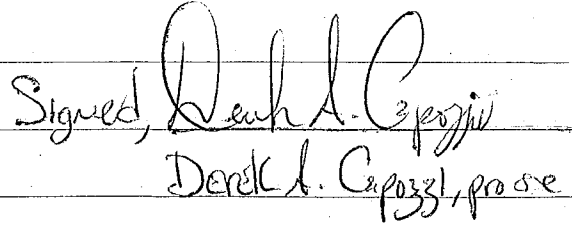 Signed, Derek A. Capozzi
Derek A. Capozzi, pro se